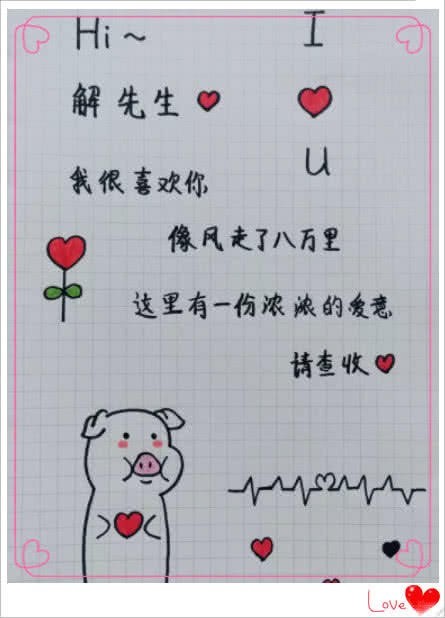 Hi~
I
解先生
U
我很喜欢你
像风走了八万里
这里有一份浓浓的爱意
请查收
Love